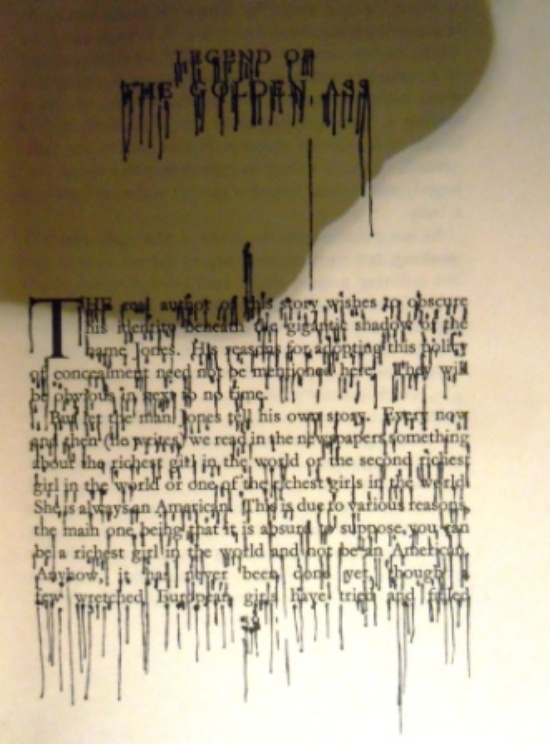 LEGEND OF
THE GOLDEN ASS
THE real author of this story wishes to obscure
his identity beneath the gigantic shadow of the
name Jones. His reasons for adopting this policy
of concealment need not be mentioned here. They will
be obvious in next to no time.
But let the man Jones tell his own story. Every now
and then (he writes) we read in the newspapers something
about the richest girl in the world or the second richest
girl in the world or one of the richest girls in the world.
She is always an American. This is due to various reasons,
the main one being that it is absurd to suppose you can
be a richest girl in the world and not be an American.
Anyhow, it has never been done yet, though a
few wretched European girls have tried and failed